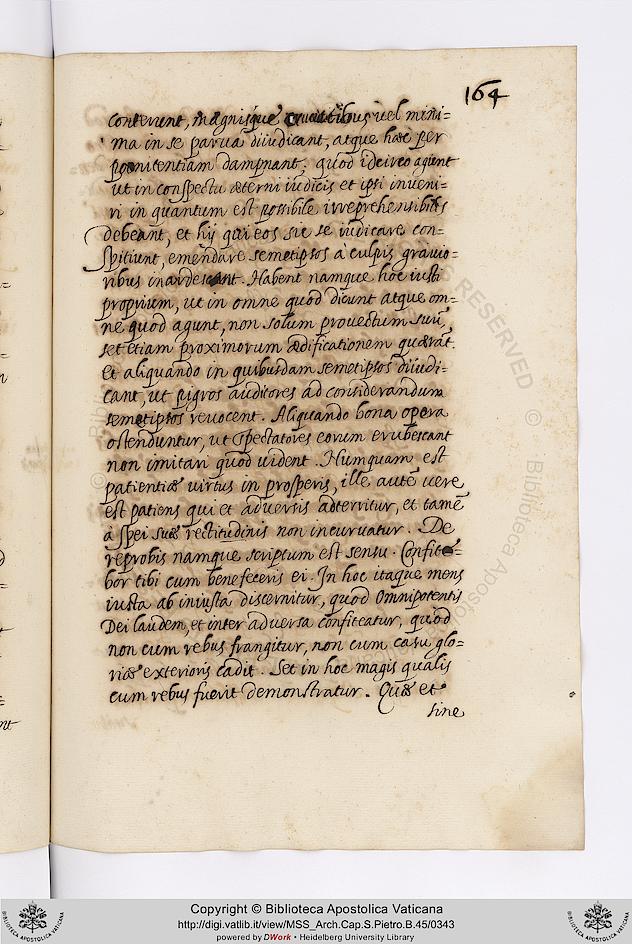 164
conterunt, magnisque cruciatibus vel mini=
ma in se parva diiudicant, atque hæc per
pœnitentiam dampnant; quod idcirco agunt
ut in conspectu æterni iudicis et ipsi inveni=
ri in quantum est possibile irreprehensibiles
debeant, et hij qui eos sic se iudicare con=
spitiunt, emendare semetipsos à culpis gravio=
ribus inardescant. Habent namque hoc iusti
proprium, ut in omne quod dicunt atque om=
ne quod agunt, non solum provectum suũ,
set etiam proximorum ædificationem quærãt.
Et aliquando in quibusdam semetipsos diiudi=
cant, ut pigros auditores ad considerandum
semetipsos revocent. Aliquando bona opera
ostenduntur, ut spectatores eorum erubescant
non imitari quod vident. Numquam est
patientiæ virtus in prosperis, ille autẽ vere
est patiens qui et adversis adterritur, et tamẽ
à spei suæ rectitudinis non incurvatur. De
reprobis namque scriptum est sensu. Confite=
bor tibi cum benefeceris ei. In hoc itaque mens
iusta ab iniusta discernitur, quod Omnipotentis
Dei laudem, et inter adversa confiteatur, quod
non cum rebus frangitur, non cum casu glo=
riæ exterioris cadit. Set in hoc magis qualis
cum rebus fuerit demonstratur. Quæ et
sine
nt
Copyright © Biblioteca Apostolica Vaticana
http://digi.vatlib.it/view/MSS_Arch.Cap.S.Pietro.B.45/0343
powered by DWork • Heidelberg University Library